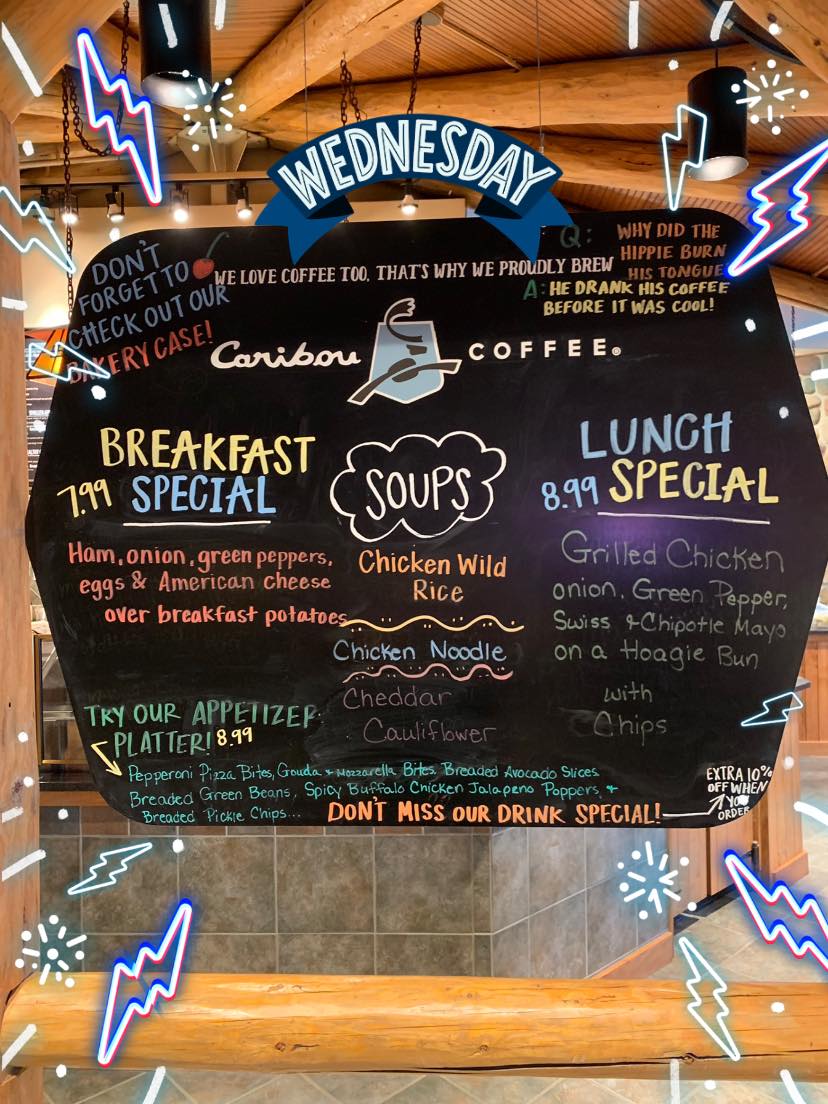 WEDNESDAY
DON'T
FORGET TO
CHECK OUT OUR
BAKERY CASE!
WE LOVE COFFEE TOO, THAT'S WHY WE PROUDLY BREW
Q: WHY DID THE
HIPPIE BURN
HIS TONGUE
A: HE DRANK HIS COFFEE
BEFORE IT WAS COOL!
Caribou COFFEE®
BREAKFAST
7.99 SPECIAL
Ham, onion, green peppers,
eggs & American cheese
over breakfast potatoes
SOUPS
Chicken Wild
Rice
Chicken Noodle
Cheddar
Cauliflower
LUNCH
8.99 SPECIAL
Grilled Chicken
onion, Green Pepper,
Swiss + Chipotle Mayo
on a Hoagie Bun
with
Chips
TRY OUR APPETIZER
PLATTER! 8.99
Pepperoni Pizza Bites, Gouda + Mozzarella Bites, Breaded Avocado Slices
Breaded Green Beans, Spicy Buffalo Chicken Jalapeno Poppers, +
Breaded Pickle Chips...
DON'T MISS OUR DRINK SPECIAL!
EXTRA 10%
OFF WHEN
YOU
ORDER